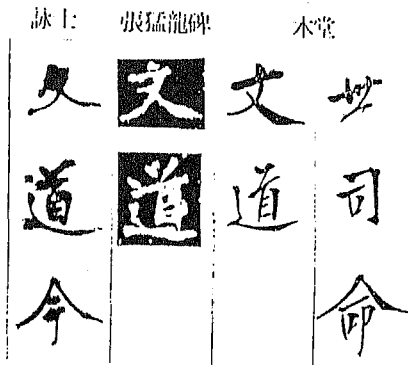 詠士 張猛龍碑 木堂
文 文 文 妙
道 道 道 司
今 命